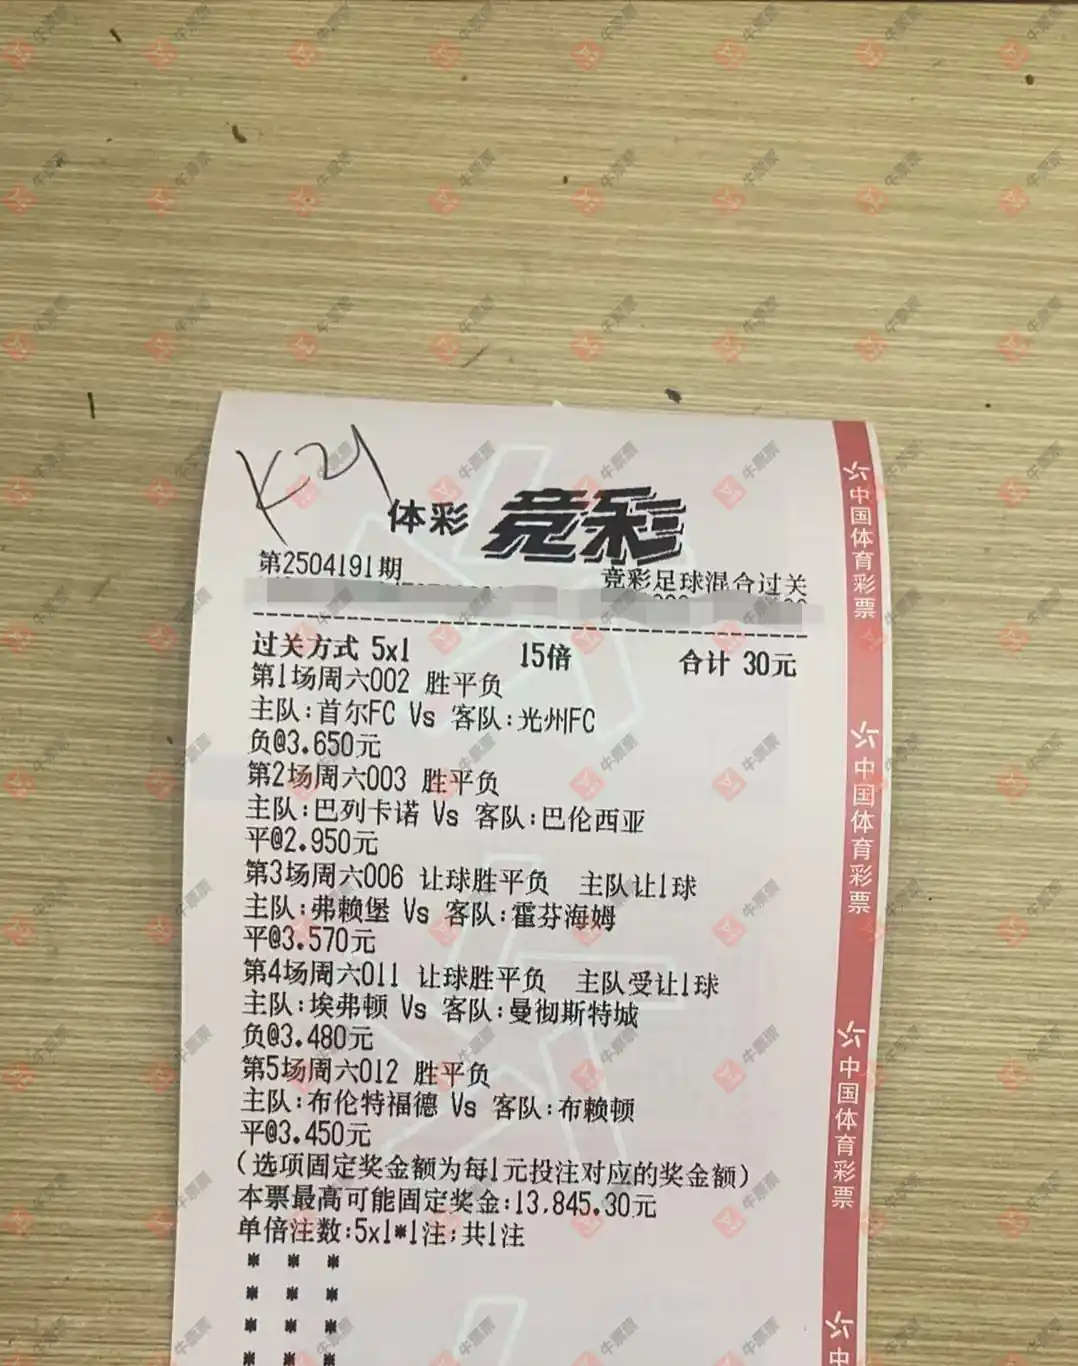 体彩 竞彩
第2504191期
竞彩足球混合过关
过关方式 5x1 15倍 合计 30元
第1场周六002 胜平负
主队:首尔FC Vs 客队:光州FC
负@3.650元
第2场周六003 胜平负
主队:巴列卡诺 Vs 客队:巴伦西亚
平@2.950元
第3场周六006 让球胜平负 主队让1球
主队:弗赖堡 Vs 客队:霍芬海姆
平@3.570元
第4场周六011 让球胜平负 主队受让1球
主队:埃弗顿 Vs 客队:曼彻斯特城
负@3.480元
第5场周六012 胜平负
主队:布伦特福德 Vs 客队:布赖顿
平@3.450元
(选项固定奖金额为每1元投注对应的奖金额)
本票最高可能固定奖金:13,845.30元
单倍注数:5x1*1注;共1注
* * *
* * *
* * *
* * *
中国体育彩票
中国体育彩票
中国体育彩票
中
牛票票